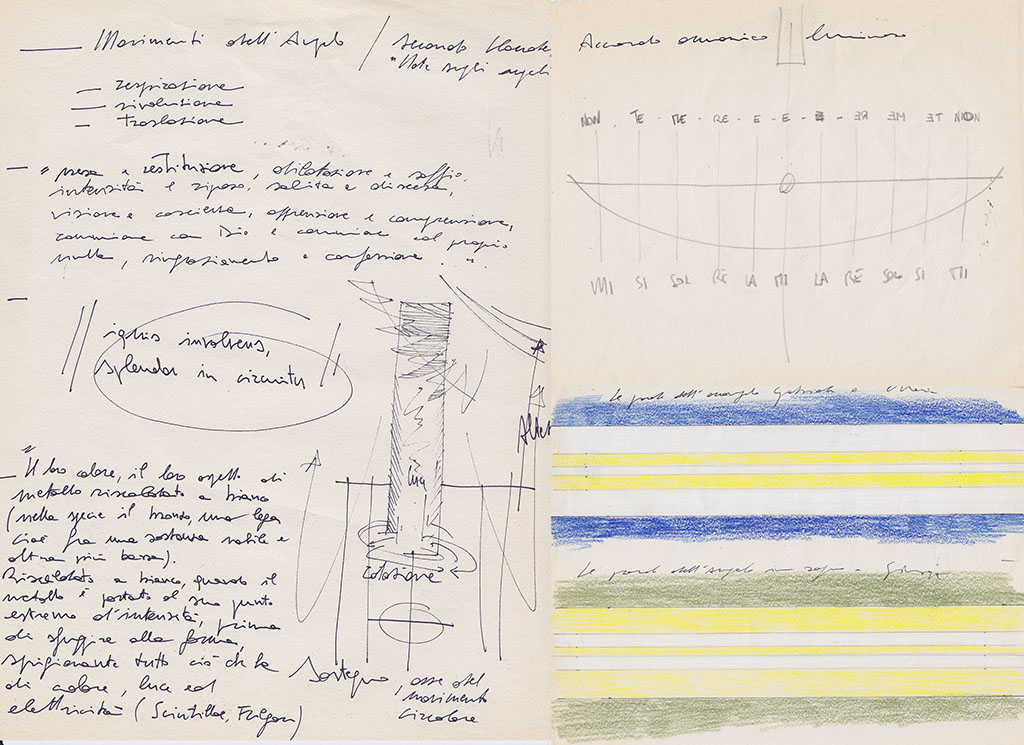 Movimenti dell'Angelo / secondo
"Note sugli angeli
— respirazione
— rivoluzione
— traslazione
— "presa e restituzione, dilatazione e soffio,
intensità e riposo, salita e discesa,
visione e coscienza, apprensione e comprensione,
comunione con Dio e comunione col proprio
nulla, ringraziamento e confessione."
ignis involvens,
splendor in circuitu
luce
rotazione
Sostegno, asse del
movimento
circolare
"Il loro colore, il loro aspetto di
metallo riscaldato a bianco
(nella specie il bronzo, una lega
cioè fra una sostanza nobile e
altra più bassa).
Riscaldato a bianco, quando il
metallo è portato al suo punto
estremo d'intensità, prima
di sfuggire alla forma,
sprigionante tutto ciò che ha
di calore, luce ed
elettricità (Scintillae, Fulgori)
Accordo armonico luminoso
NON TE - ME - RE - E - E - E - RE EM ET NON
MI SI SOL RE LA MI LA RE SOL SI MI
Le parole dell'arcangelo Gabriele a
Le parole dell'Angelo in sogno a